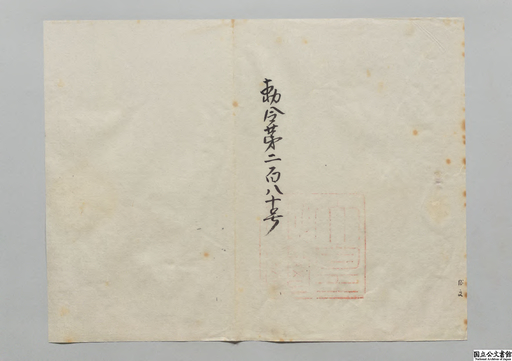 勅令第二百八十号
国立公文書館
National Archives of Japan